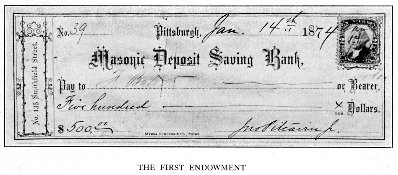 No. 39 Pittsburgh, Jan. 14th 1874
Masonic Deposit Saving Bank,
No. 145 Smithfield Street.
Pay to or Bearer,
Five hundred x/100 Dollars.
$500.00 Jno Pitcairn Jr
THE FIRST ENDOWMENT